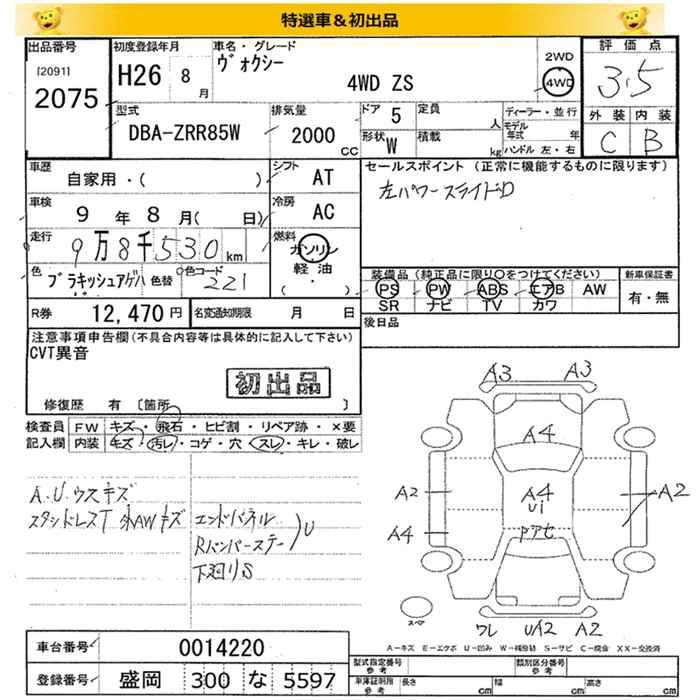 特選車＆初出品
出品番号 初度登録年月 車名・グレード 評価点
[2091] ヴォクシー 2WD
2075 H26 8月 4WD ZS 4WD 3.5
型式 排気量 ドア 5 定員 人 ディーラー・並行 外装 内装
DBA-ZRR85W 2000 CC 形状 W 積載 kg モデル年式 年 C B
ハンドル 左・右
車歴 シフト セールスポイント (正常に機能するものに限ります)
自家用・( ) AT 左パワースライドD
車検 冷房
9 年 8 月( 日) AC
走行 燃料
9万8千530km ガソリン
色 色替 色コード 軽油 装備品 (純正品に限り○をつけてください) 新車保証書
221 ( ・ ) PS PW ABS エアB AW 有・無
SR ナビ TV カワ
R券 12,470円 名変通知期限 月 日 後日品
注意事項申告欄 (不具合内容等は具体的に記入して下さい)
CVT異音
初出品
修復歴 有 [箇所 ]
検査員 FW キズ・飛石・ヒビ割・リペア跡・×要
記入欄 内装 キズ・汚レ・コゲ・穴・スレ・キレ・破レ
A.U.ウスキズ
スタッドレスT 外AWキズ
エンドパネル
Rバンパーステー U
下廻りS
A3 A3
A4
A2 A4 A2
U1
A4
スペア
ワレ UA2 A2
A-キズ E-エクボ U-凹み W-補修跡 S-サビ C-腐食 XX-交換済
車台番号 0014220
登録番号 盛岡 300 な 5597
型式指定番号 参考 類別区分番号 参考
車庫証明用 参考 長さ cm 幅 cm 高さ cm